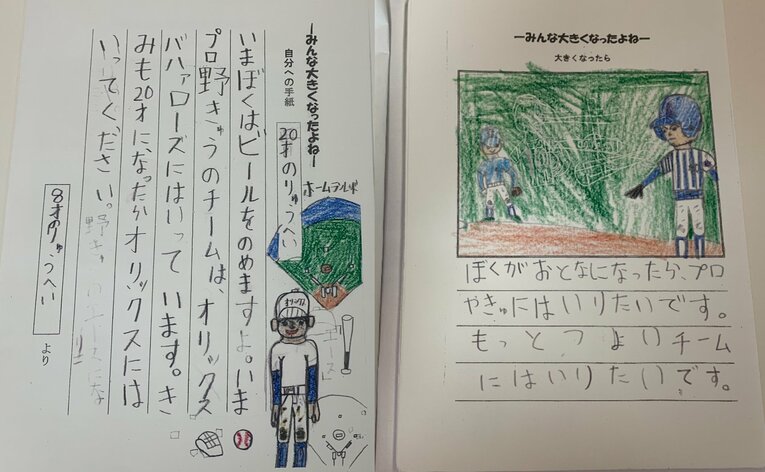 ーみんな大きくなったよねー
自分への手紙
20才のりゅうへい
いまぼくはビールをのめますよ。いま
プロ野きゅうのチームは、オリックス
バファローズにはいって います。き
みも20才になったらオリックスには
いってください。野きゅうのエースにな
8才のりゅうへい
より
ホームラン
オリックス
エース
ーみんな大きくなったよねー
大きくなったら
ぼくがおとなになったら、プロ
やきゅにはいりたいです。
もっとつよいチーム
にはいりたいです。